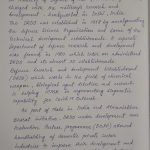 charged with the military's research and
development, headquartered in Delhi, India.
The DRDO was established in 1958 by amalgamating
the Defence Science Organisation and some of the
technical development establishments. A separate
Department of Defence Research and Development
was formed in 1980 which later on administered
DRDO and its almost 50 establishments.
Defence Research and Development Establishment
(DRDE) which works in the field of chemical
weapon, biological agent detection and research
is helping ICMR in augmenting diagnostic
capability for Covid 19 Outbreak.
As part of Make in India and Atmanirbhar
Bharat initiative, DRDO under development cum
Production Partner programme (DcPP) allowed
handholding of domestic private sector
industries to improve their development and